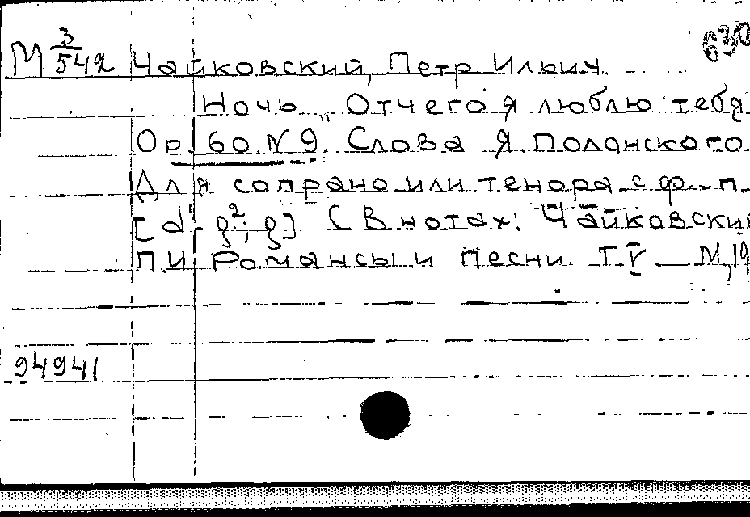 630
М 3/542 Чайковский, Петр Ильич
Ночь „Отчего я люблю тебя
Op. 60 N 9. Слова Я Полонского
Для сопрано или тенора с ф.-п.
[d¹-g²; g] (В нотах: Чайковский
П И Романсы и песни Т. V М, 19
94941